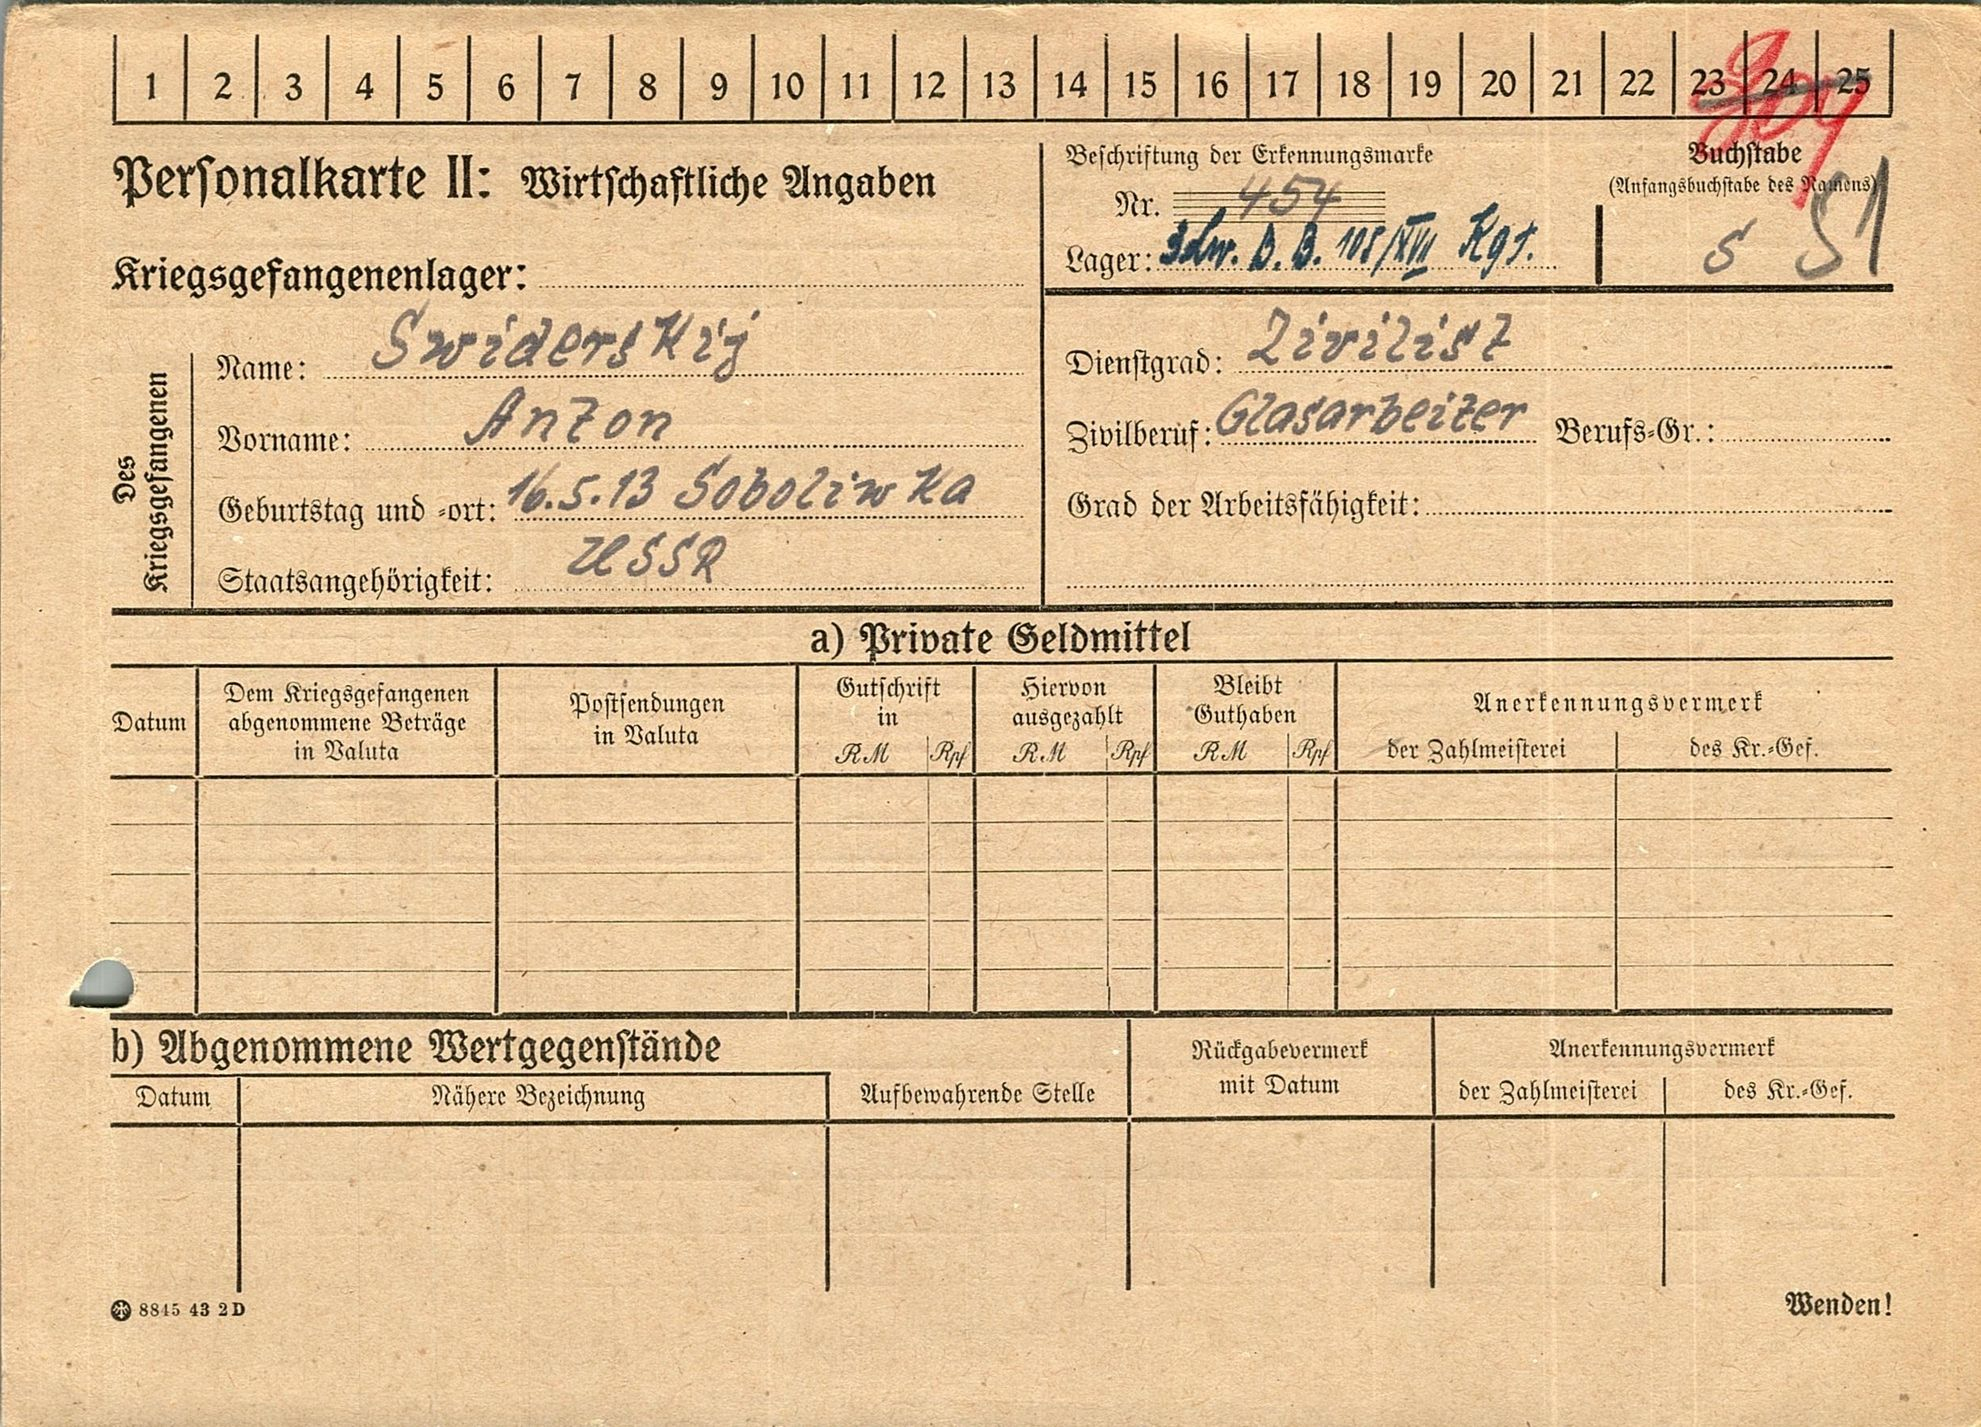 1 2 3 4 5 6 7 8 9 10 11 12 13 14 15 16 17 18 19 20 21 22 23 24 25
Personalkarte II: Wirtschaftliche Angaben
Beschriftung der Erkennungsmarke
Nr. 454
Lager: B. B. 108/XVII Kgf.
Buchstabe
(Anfangsbuchstabe des Namens)
S S1
Kriegsgefangenenlager:
Des Kriegsgefangenen
Name: Swiderskij
Vorname: Anton
Geburtstag und -ort: 16.5.13 Soboliwka
Staatsangehörigkeit: USSR
Dienstgrad: Zivilist
Zivilberuf: Glasarbeiter Berufs-Gr.:
Grad der Arbeitsfähigkeit:
a) Private Geldmittel
Datum
Dem Kriegsgefangenen
abgenommene Beträge
in Valuta
Postsendungen
in Valuta
Gutschrift
in
RM Rpf
Hiervon
ausgezahlt
RM Rpf
Bleibt
Guthaben
RM Rpf
Anerkennungsvermerk
der Zahlmeisterei des Kr.-Gef.
b) Abgenommene Wertgegenstände
Datum Nähere Bezeichnung
Aufbewahrende Stelle
Rückgabevermerk
mit Datum
Anerkennungsvermerk
der Zahlmeisterei des Kr.-Gef.
8845 43 2D
Wenden!